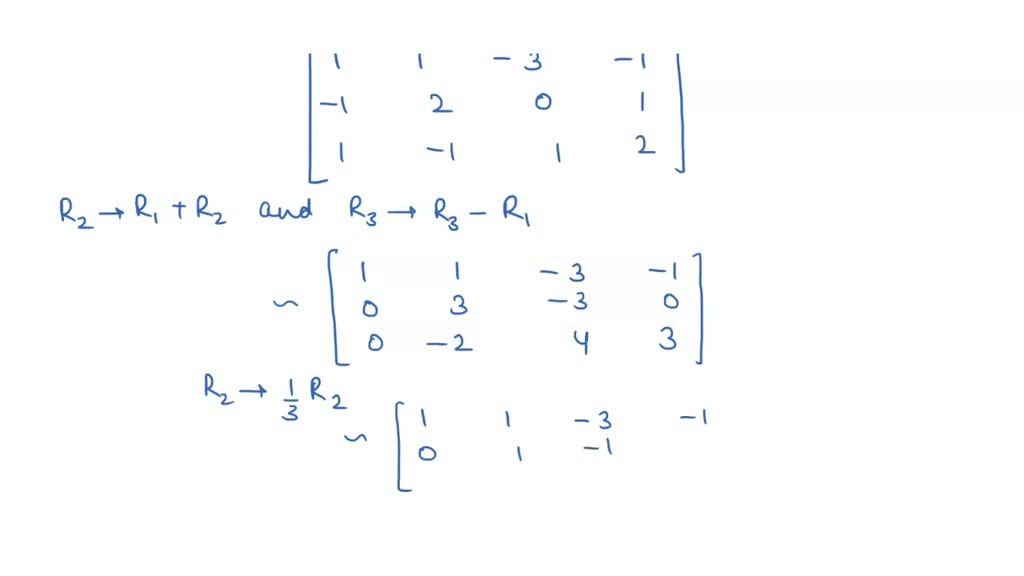 1 1 -3 -1
-1 2 0 1
1 -1 1 2
R₂ → R₁ + R₂ and R₃ → R₃ - R₁
1 1 -3 -1
~ 0 3 -3 0
0 -2 4 3
R₂ → 1/3 R₂
1 1 -3 -1
~ 0 1 -1